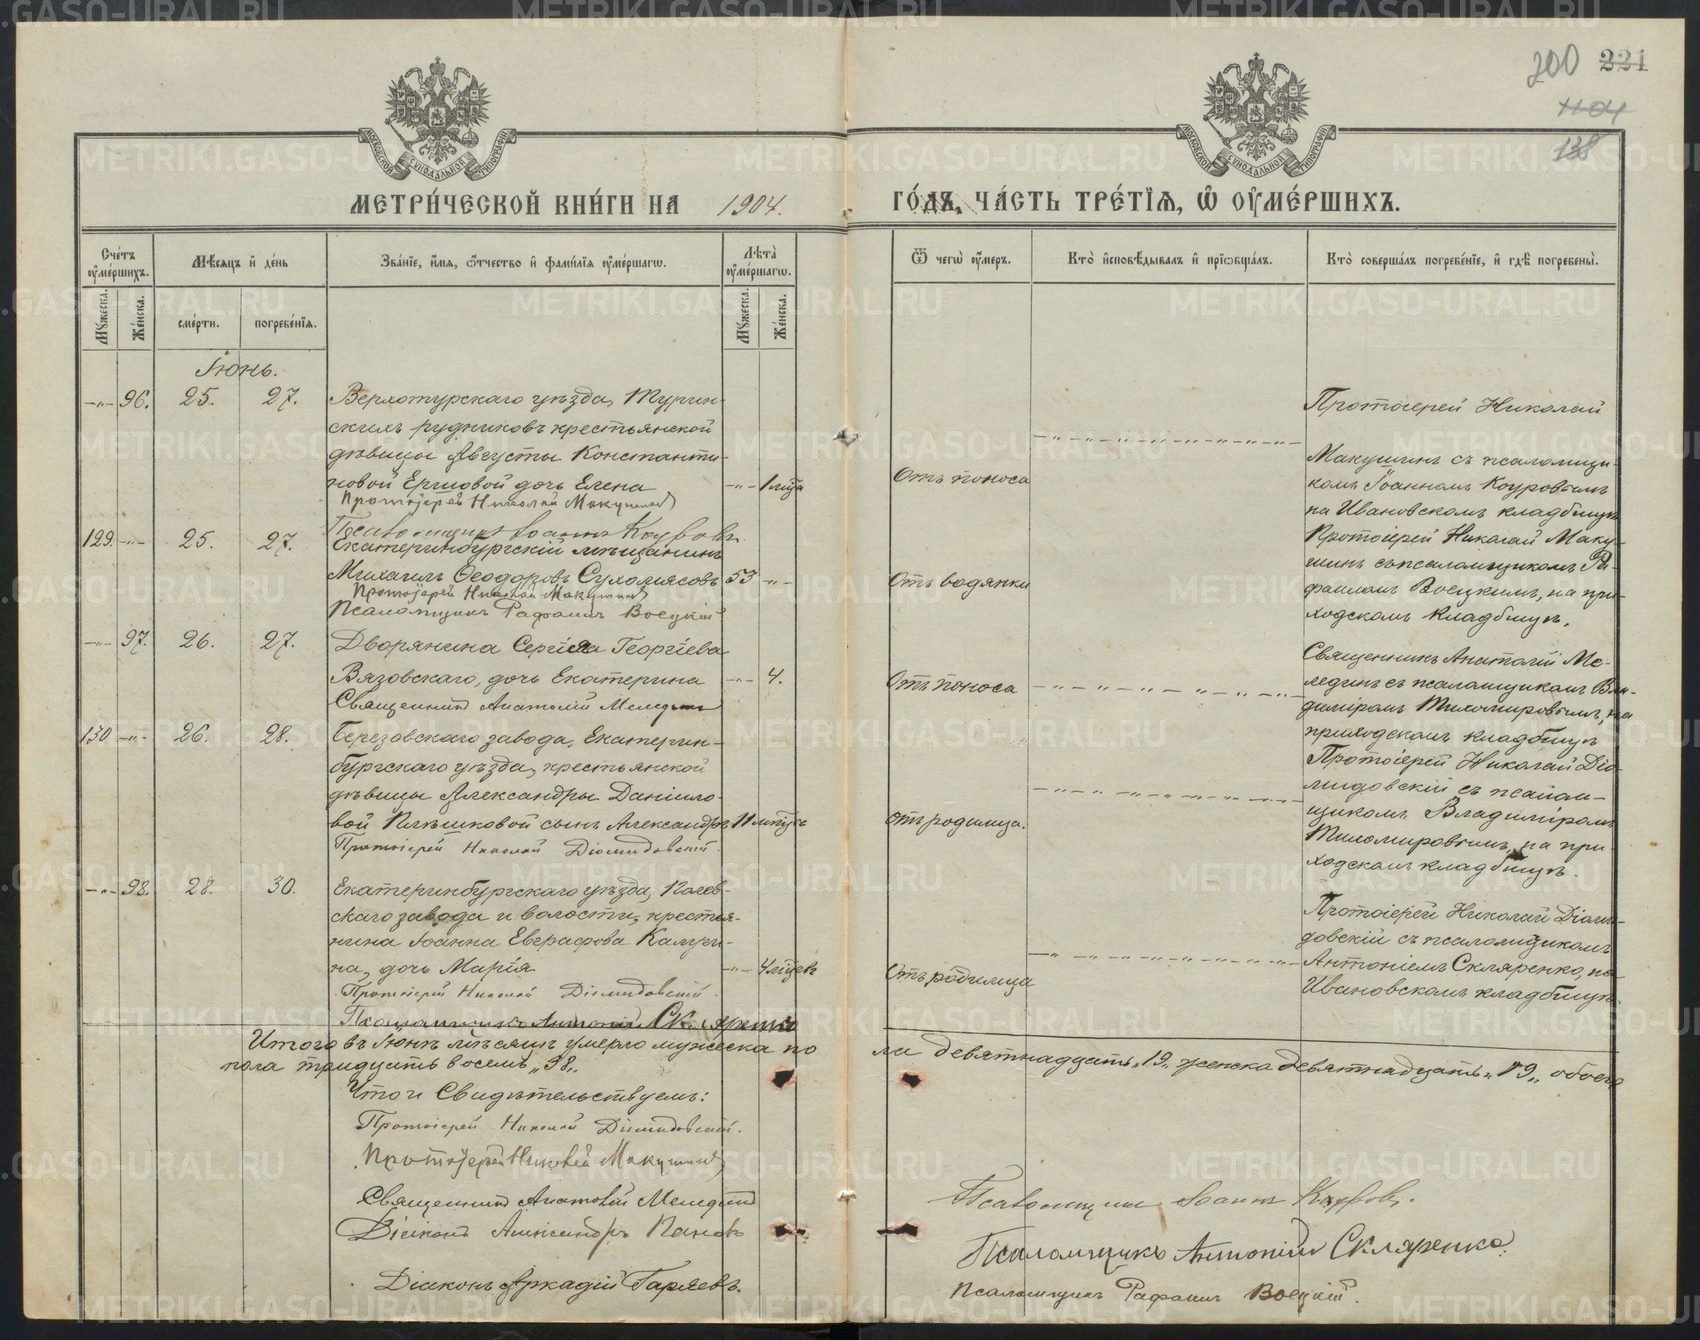 200 221
1104
138
МОСКОВСКОЙ СѴНОДАЛЬНОЙ ТИПОГРАФІИ
МОСКОВСКОЙ СѴНОДАЛЬНОЙ ТИПОГРАФІИ
МЕТРИ́ЧЕСКОЙ КНИ́ГИ НА 1904.
ГО́ДЪ, ЧА́СТЬ ТРЕ́ТЇѦ, Ѽ ОУ҆МЕ́РШИХЪ.
Сче́тъ оу҆ме́ршихъ.
Мꙋ́жеска.
Же́нска.
Мѣ́сяцъ и҆ де́нь
сме́рти.
погребе́нїѧ.
Зва́нїе, и҆́мѧ, ѻ҆́тчество и҆ фами́лїѧ оу҆ме́ршагѡ.
Лѣ̑та̀ оу҆ме́ршагѡ.
Мꙋ́жеска.
Же́нска.
Ѿ чегѡ̀ оу҆́меръ.
Кто̀ и҆сповѣ́дывалъ и҆ прїѡбща́лъ.
Кто̀ соверша́лъ погребе́нїе, и҆ гдѣ̀ погребены̀.
Іюнь.
-"- 96. 25. 27.
Верхотурскаго уѣзда, Турин-
скихъ рудниковъ крестьянской
дѣвицы Августы Константи-
новой Ершовой дочь Елена
-"- 1 мѣс.
Протоіерей Николай Макушинъ
Псаломщикъ Іоаннъ Коуровъ
Отъ поноса
Протоіерей Николай
Макушинъ съ псаломщи-
комъ Іоанномъ Коуровымъ
на Ивановскомъ кладбищѣ
129. -"- 25. 27.
Екатеринбургскій мѣщанинъ
Михаилъ Ѳеодоровъ Сухомясовъ
53 -"-
Протоіерей Николай Макушинъ
Псаломщикъ Рафаилъ Воецкій
Отъ водянки
Протоіерей Николай Маку-
шинъ съ псаломщикомъ Ра-
фаиломъ Воецкимъ, на при-
ходскомъ кладбищѣ.
-"- 97. 26. 27.
Дворянина Сергія Георгіева
Вязовскаго, дочь Екатерина
-"- 4.
Священникъ Анатолій Меледин
Отъ поноса
Священникъ Анатолій Ме-
лединъ съ псаломщикомъ Вла-
димиромъ Тихомировымъ, на
приходскомъ кладбищѣ
130 -"- 26. 28.
Березовскаго завода, Екатерин-
бургскаго уѣзда, крестьянской
дѣвицы Александры Данило-
вой Плѣшковой сынъ Александръ
11 мѣсяц.
Протоіерей Николай Діомидовскій.
отъ родимца.
Протоіерей Николай Діо-
мидовскій съ псалом-
щикомъ Владиміромъ
Тихомировымъ, на при-
ходскомъ кладбищѣ.
-"- 98. 28. 30.
Екатеринбургскаго уѣзда,
завода и волости, крестья-
нина Іоанна Евграфова
на, дочь Марія
-"- 4 мѣсяц.
Протоіерей Николай Діомидовскій.
Псаломщикъ Антоній Скляренко
Отъ родимца
Протоіерей Николай Діоми-
довскій съ псаломщикомъ
Антоніемъ Скляренко, на
Ивановскомъ кладбищѣ.
Итого въ Іюнѣ мѣсяцѣ умерло мужеска по
ла девятнадцать "19" женска девятнадцать "19" обоего
пола тридцать восемь "38"
Что и Свидѣтельствуемъ:
Протоіерей Николай Діомидовскій.
Протоіерей Николай Макушинъ
Священникъ Анатолій Меледин
Діаконъ Александръ Пановъ
Діаконъ Аркадій Гаряевъ.
Псаломщикъ Іоаннъ Коуровъ.
Псаломщикъ Антоній Скляренко.
Псаломщикъ Рафаилъ Воецкій.
METRIKI.GASO-URAL.RU